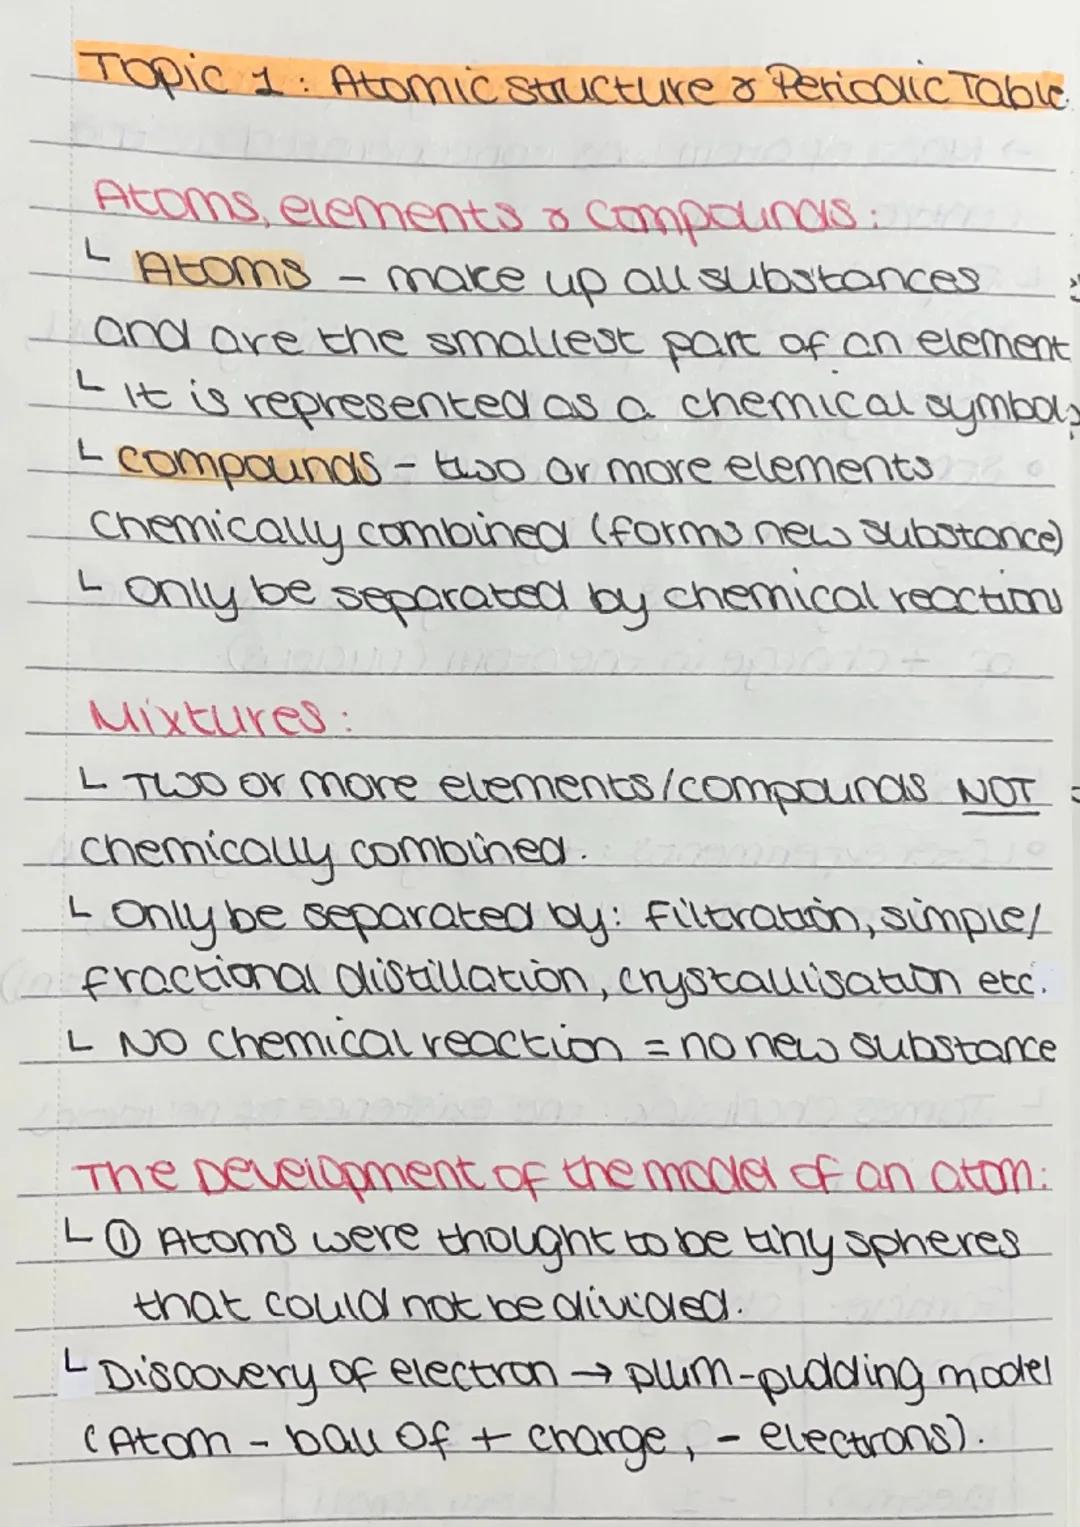 Topic 1: Atomic structure & Periodic Table
Atoms, elements & compounds:
└ Atoms - make up all substances
and are the smallest part of an element
└ It is represented as a chemical symbol
└ compounds - two or more elements
chemically combined (forms new substance)
└ only be separated by chemical reactions
Mixtures:
└ Two or more elements/compounds NOT
chemically combined.
└ Only be separated by: filtration, simple/
fractional distillation, crystallisation etc.
└ NO chemical reaction = no new substance
The Development of the model of an atom:
└ ① Atoms were thought to be tiny spheres
that could not be divided.
└ Discovery of electron → plum-pudding model
(Atom - ball of + charge, - electrons).